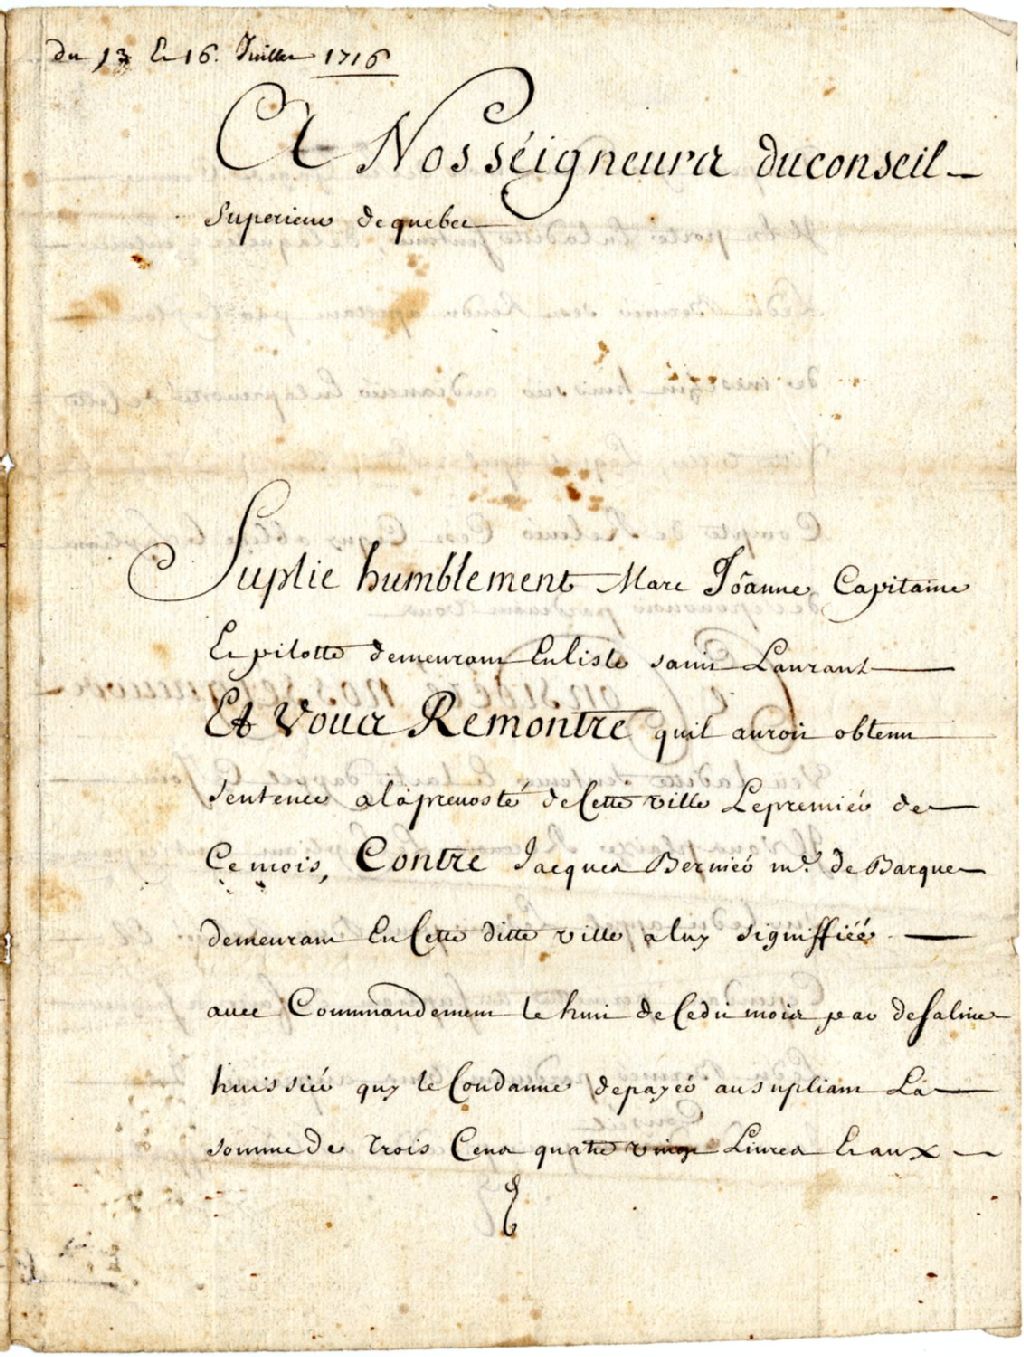 du 13 Et 16. Juillet 1716
A Nosseigneurs du conseil
Superieur de quebec
Suplie humblement Marc Joanne Capitaine
Et pilotte demeurant En lisle saint Laurant
Et Vous Remontre quil auroit obtenu
sentence a la prevosté de Cette ville Le premier de
Ce mois, Contre Jacques Bernier me. de Barque
demeurant En Cette ditte ville a luy signiffiéé
avec Commandement le huit de Cedit mois par deSaline
huissier quy le Condanne de payer au supliant La
somme de trois Cens quatre vingt Livres Et aux